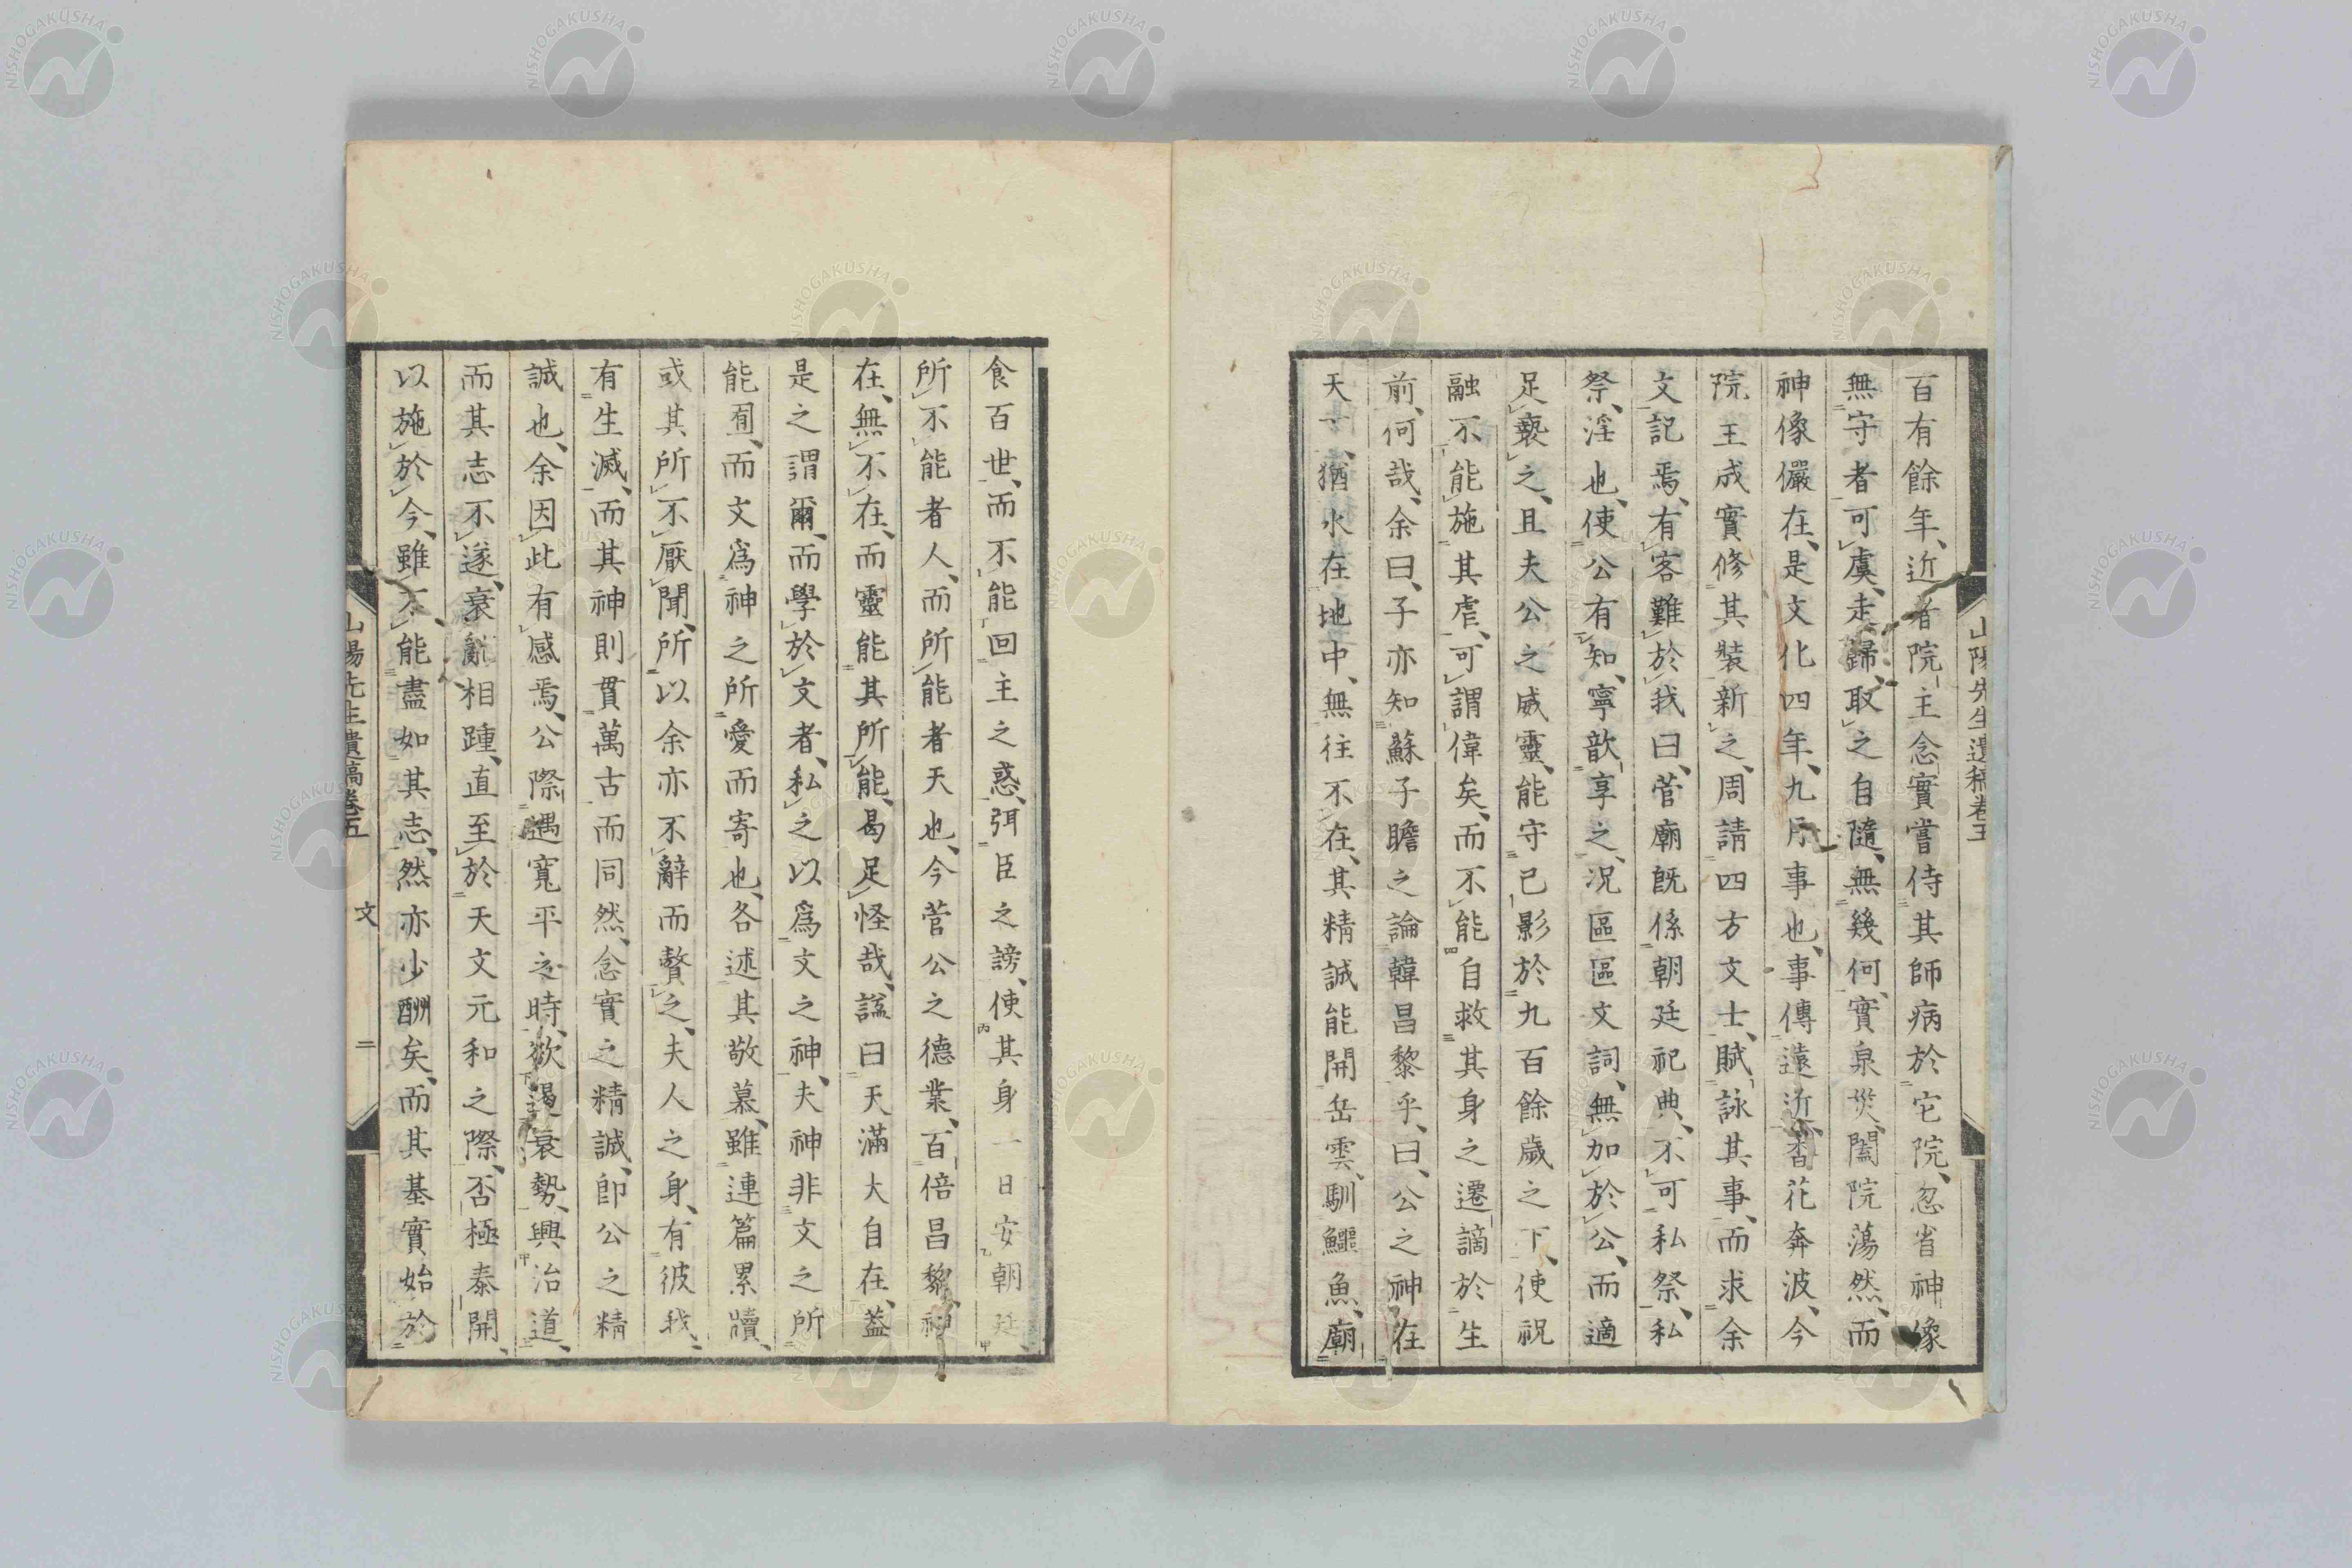 百有餘年、近者院主念實嘗侍其師病於它院、忽省神像
無守者可虞、走歸取之自隨、無幾何、實泉災、闔院蕩然、而
神像儼在、是文化四年、九月事也、事傳遠近、香花奔波、今
院主成實修其裝新之、周請四方文士、賦詠其事、而求余
文記焉、有客難於我曰、菅廟既係朝廷祀典、不可私祭、私
祭、淫也、使公有知、寧歆享之、況區區文詞、無加於公、而適
足褻之、且夫公之威靈、能守已影於九百餘歲之下、使祝
融不能施其虐、可謂偉矣、而不能自救其身之遷謫於生
前、何哉、余曰、子亦知蘇子瞻之論韓昌黎乎、曰、公之神在
天下、猶水在地中、無往不在、其精誠能開岳雲、馴鱷魚、廟
山陽先生遺稿卷五
食百世、而不能回主之惑、弭臣之謗、使其身一日安朝廷、
所不能者人、而所能者天也、今菅公之德業、百倍昌黎、神
在、無不在、而靈能其所能、曷足怪哉、諡曰天滿大自在、蓋
是之謂爾、而學於文者、私之以爲文之神、夫神非文之所
能囿、而文爲神之所愛而寄也、各述其敬慕、雖連篇累牘、
或其所不厭聞、所以余亦不辭而贅之、夫人之身、有彼我、
有生滅、而其神則貫萬古而同然、念實之精誠、卽公之精
誠也、余因此有感焉、公際遇寬平之時、欲遏衰勢、興治道、
而其志不遂、衰亂相踵、直至於天文元和之際、否極泰開、
以施於今、雖不能盡如其志、然亦少酬矣、而其基實始於
山陽先生遺稿卷五 文 二